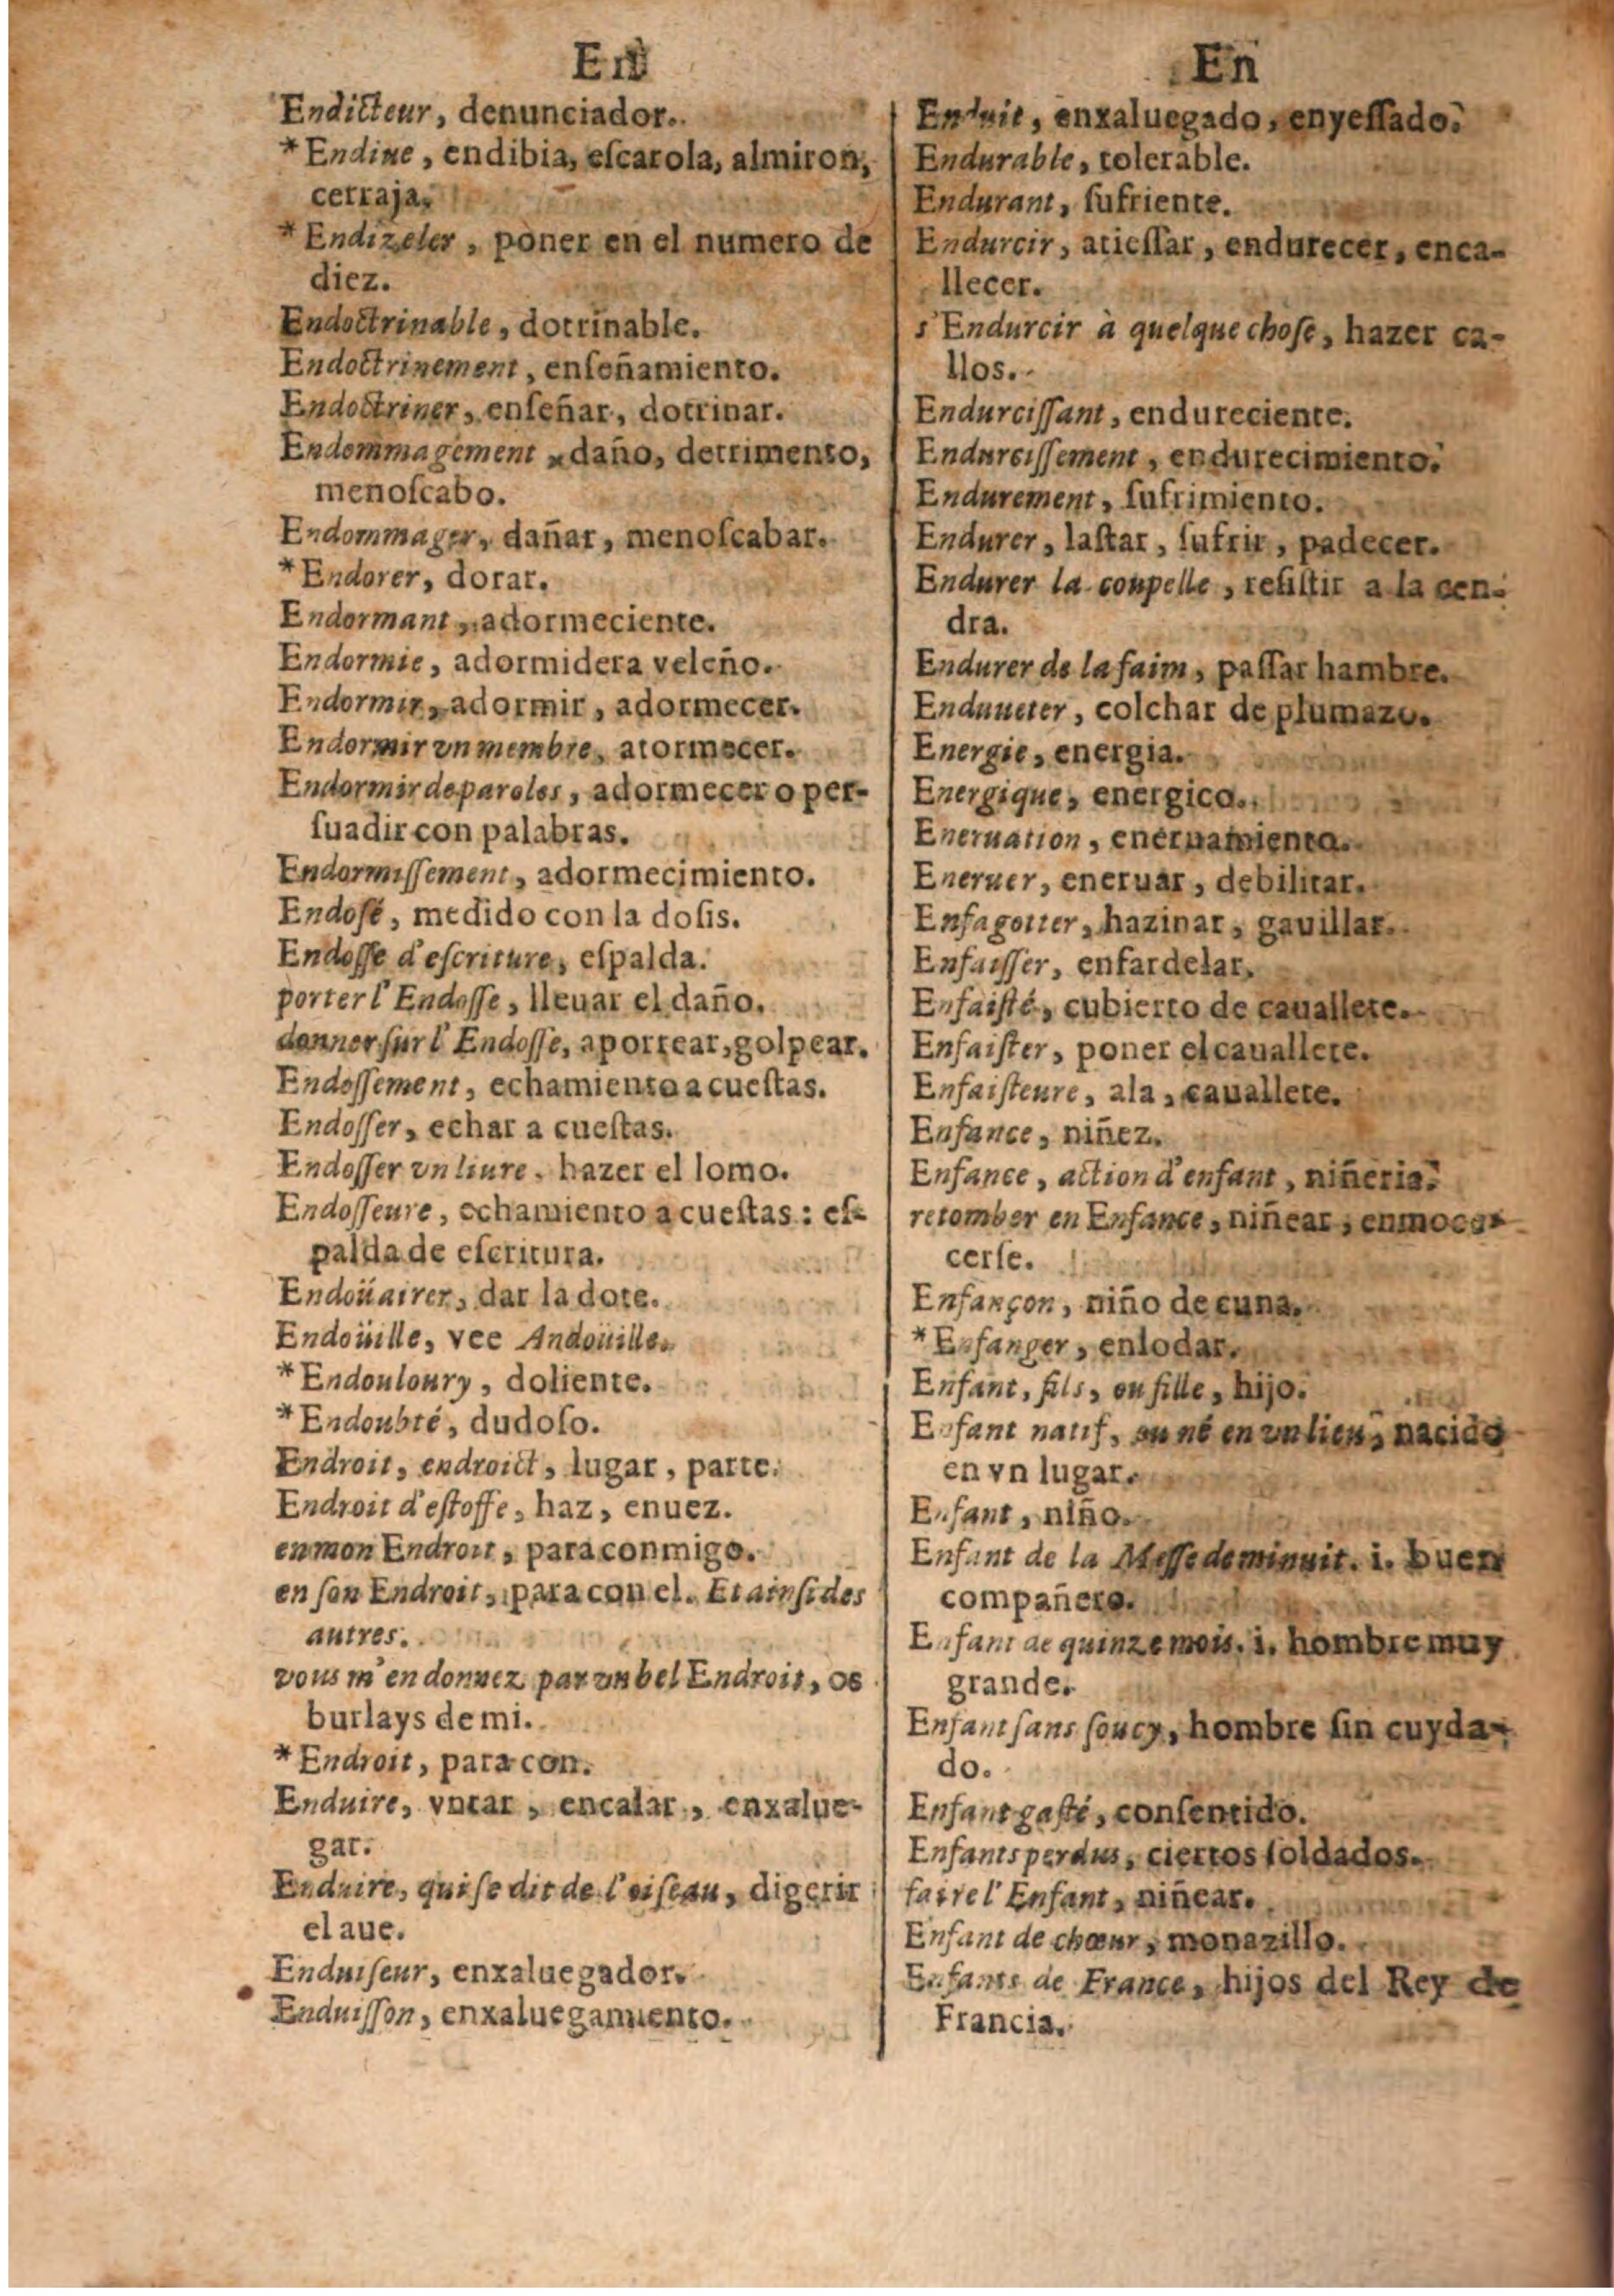 En
Endicteur, denunciador.
*Endiue, endibia, eſcarola, almiron,
cerraja.
*Endizeler, poner en el numero de
diez.
Endoctrinable, dotrinable.
Endoctrinement, enſeñamiento.
Endoctriner, enſeñar, dotrinar.
Endommagement, daño, detrimento,
menoſcabo.
Endommager, dañar, menoſcabar.
*Endorer, dorar.
Endormant, adormeciente.
Endormie, adormidera veleño.
Endormir, adormir, adormecer.
Endormir vn membre, atormecer.
Endormir de paroles, adormecer o per-
ſuadir con palabras.
Endormiſſement, adormecimiento.
Endoſé, medido con la doſis.
Endoſſe d'eſcriture, eſpalda.
porter l'Endoſſe, lleuar el daño.
donner ſur l'Endoſſe, aporrear, golpear.
Endoſſement, echamiento a cueſtas.
Endoſſer, echar a cueſtas.
Endoſſer vn liure, hazer el lomo.
Endoſſeure, echamiento a cueſtas: eſ-
palda de eſcritura.
Endoüairer, dar la dote.
Endoüille, vee Andoüille.
*Endouloury, doliente.
*Endoubté, dudoſo.
Endroit, endroict, lugar, parte.
Endroit d'eſtoffe, haz, enuez.
en mon Endroit, para conmigo.
en ſon Endroit, para con el. Et ainſi des
autres.
vous m'en donnez par vn bel Endroit, os
burlays de mi.
*Endroit, para con.
Enduire, vntar, encalar, enxalue-
gar.
Enduire, qui ſe dit de l'oiſeau, digerir
el aue.
Enduiſeur, enxaluegador.
Enduiſſon, enxaluegamiento.
En
Enduit, enxaluegado, enyeſſado.
Endurable, tolerable.
Endurant, ſufriente.
Endurcir, atieſſar, endurecer, enca-
llecer.
s'Endurcir à quelque choſe, hazer ca-
llos.
Endurciſſant, endureciente.
Endurciſſement, endurecimiento.
Endurement, ſufrimiento.
Endurer, laſtar, ſufrir, padecer.
Endurer la coupelle, reſiſtir a la cen-
dra.
Endurer de la faim, paſſar hambre.
Enduueter, colchar de plumazo.
Energie, energia.
Energique, energico.
Eneruation, eneruamiento.
Eneruer, eneruar, debilitar.
Enfagotter, hazinar, gauillar.
Enfaiſſer, enfardelar.
Enfaiſté, cubierto de cauallete.
Enfaiſter, poner el cauallete.
Enfaiſteure, ala, cauallete.
Enfance, niñez.
Enfance, action d'enfant, niñeria.
retomber en Enfance, niñear, enmoca-
cerſe.
Enfançon, niño de cuna.
*Enfanger, enlodar.
Enfant, fils, ou fille, hijo.
Enfant natif, ou né en vn lieu, nacido
en vn lugar.
Enfant, niño.
Enfant de la Meſſe de minuit. i. buen
compañero.
Enfant de quinze mois. i. hombre muy
grande.
Enfant ſans ſoucy, hombre ſin cuyda-
do.
Enfant gaſté, conſentido.
Enfants perdus, ciertos ſoldados.
faire l'Enfant, niñear.
Enfant de chœur, monazillo.
Enfants de France, hijos del Rey de
Francia.